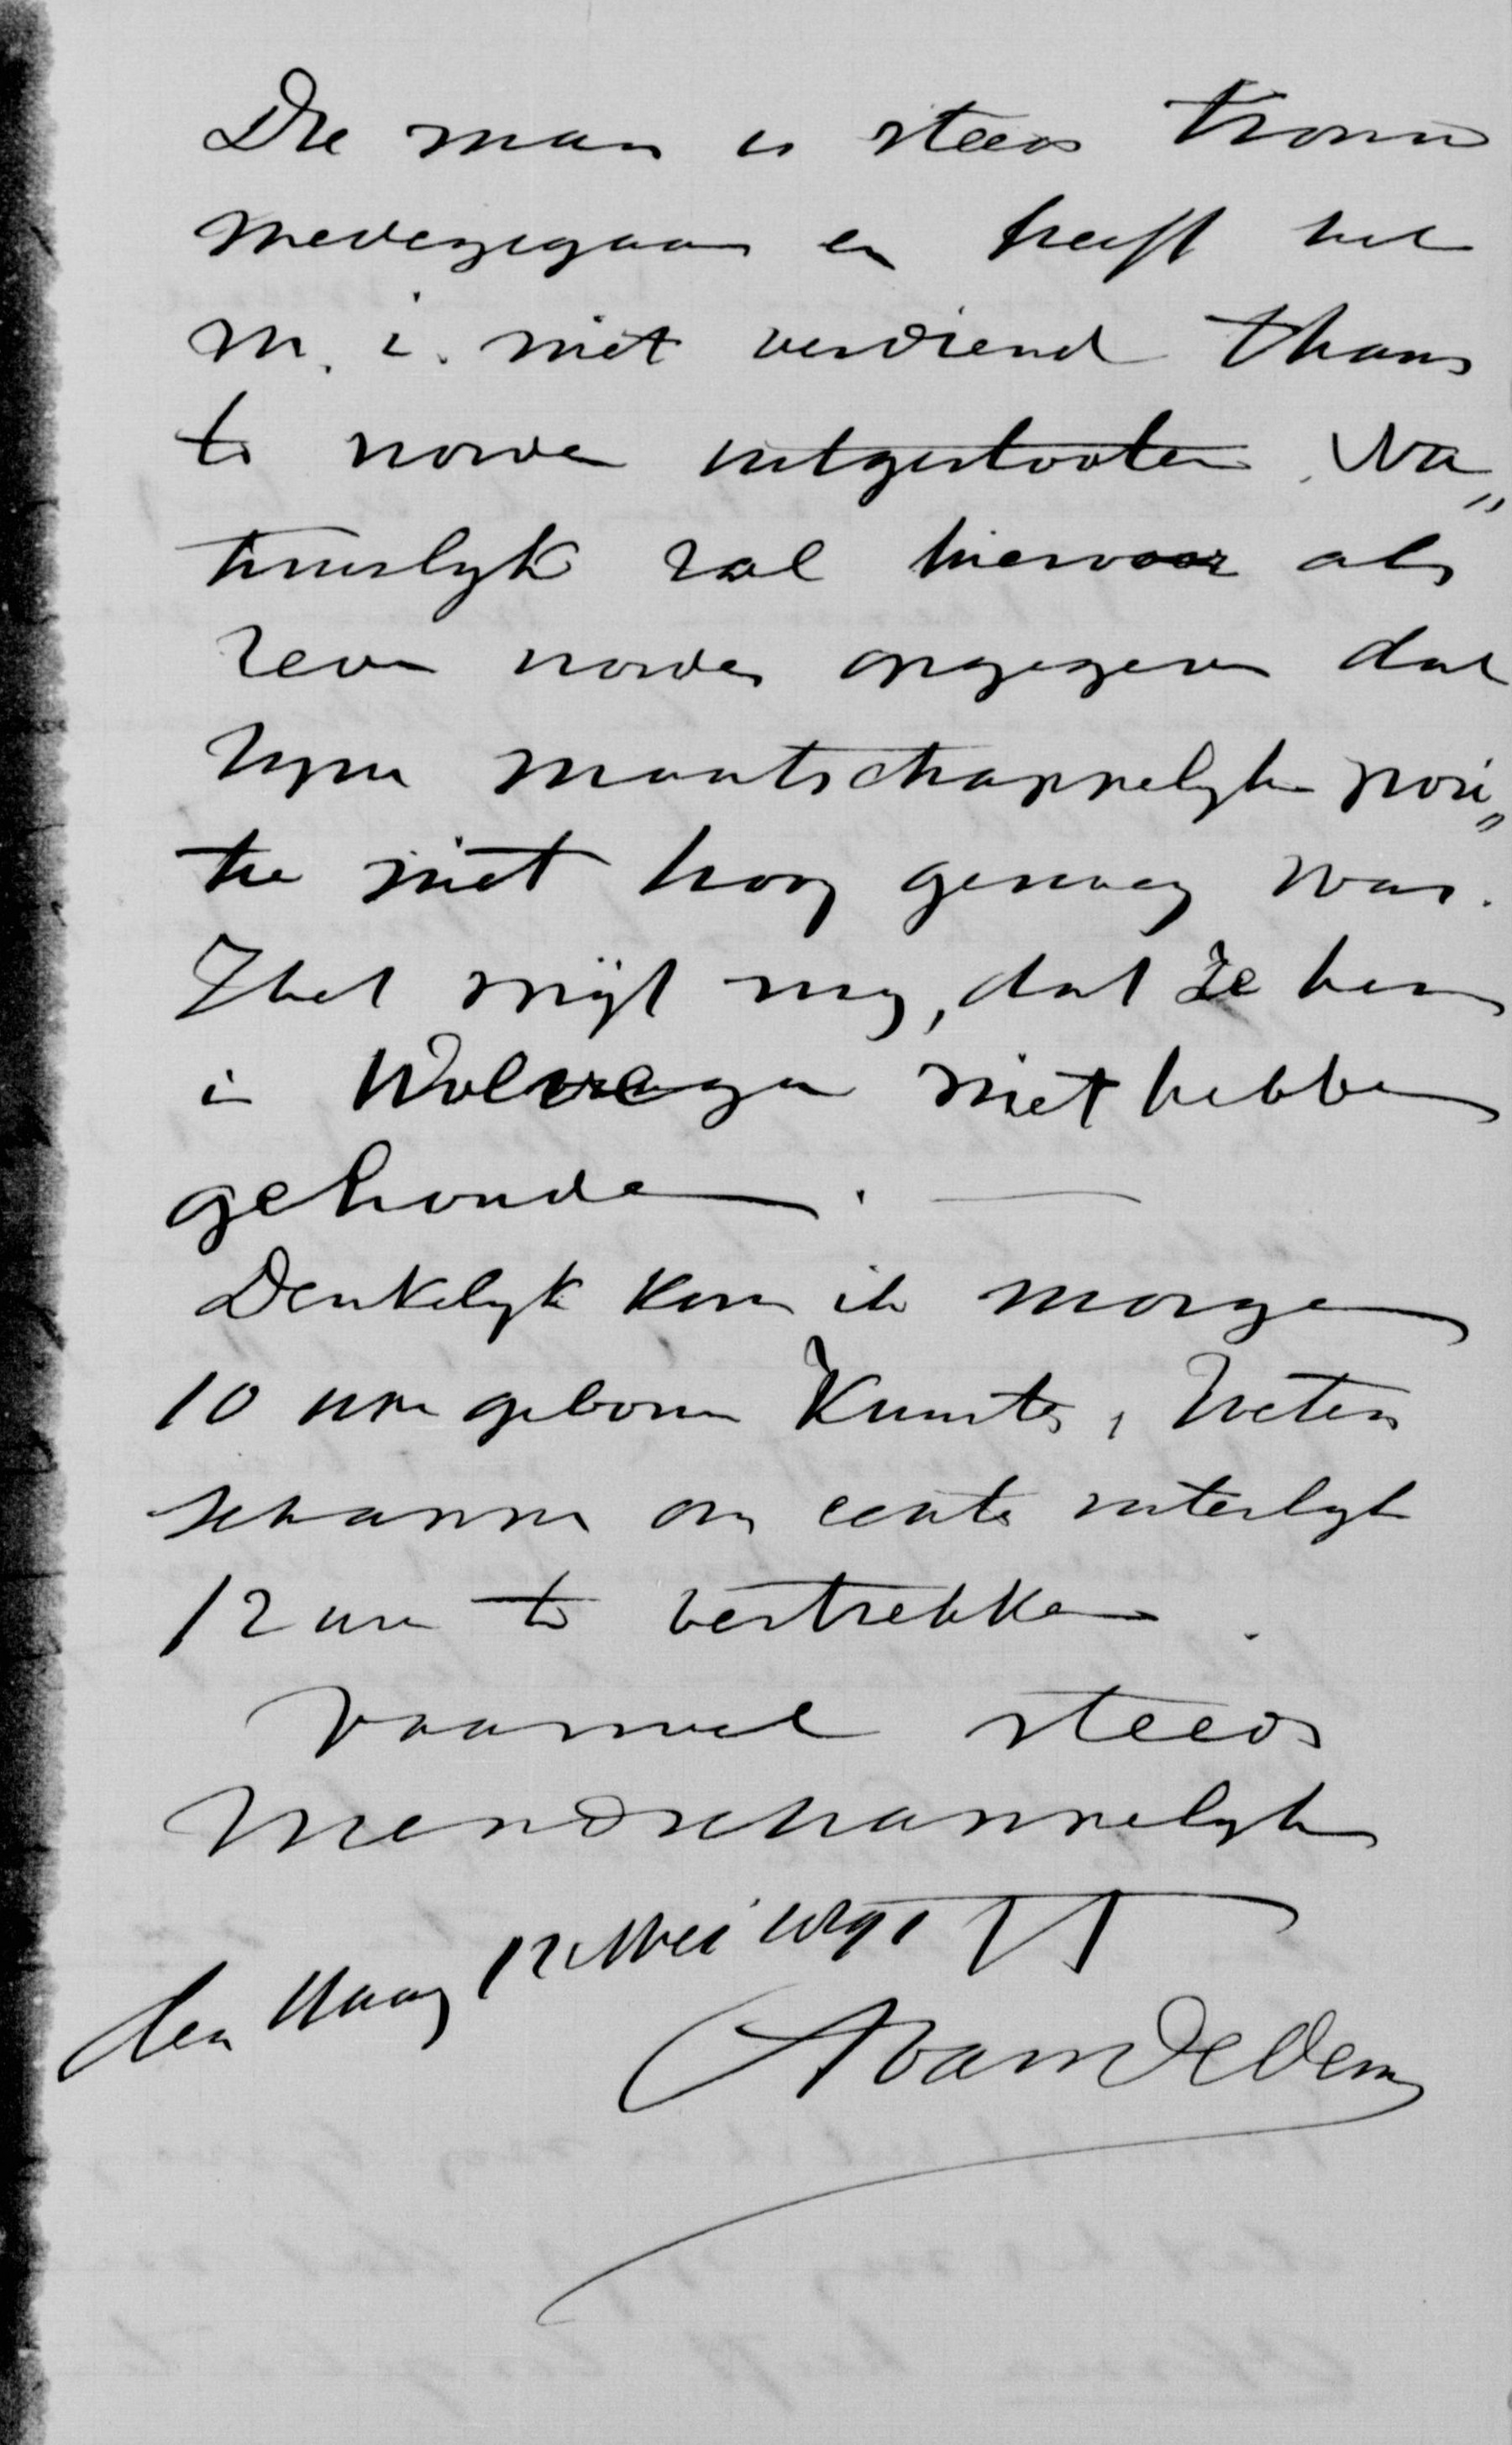 Die man is steeds trouw
medegegaan en heeft het
m. i. niet verdiend thans
te worden uitgestooten. Na„
tuurlyk zal hiervoor als
reden worden opgegeven dat
zyne maatschappelyke posi„
tie niet hoog genoeg was.
Thet spyt my, dat ze hem
in Wolvega niet hebben
gehouden.
Denkelyk kom ik morgen
10 ure gebouw Kunsten, Weten
schappen om eerst uiterlyk
12 ure te vertrekken.
Vaarwel steeds
vriendschappelyk
den Haag 12 Mei 1891 tt
AvanDedem